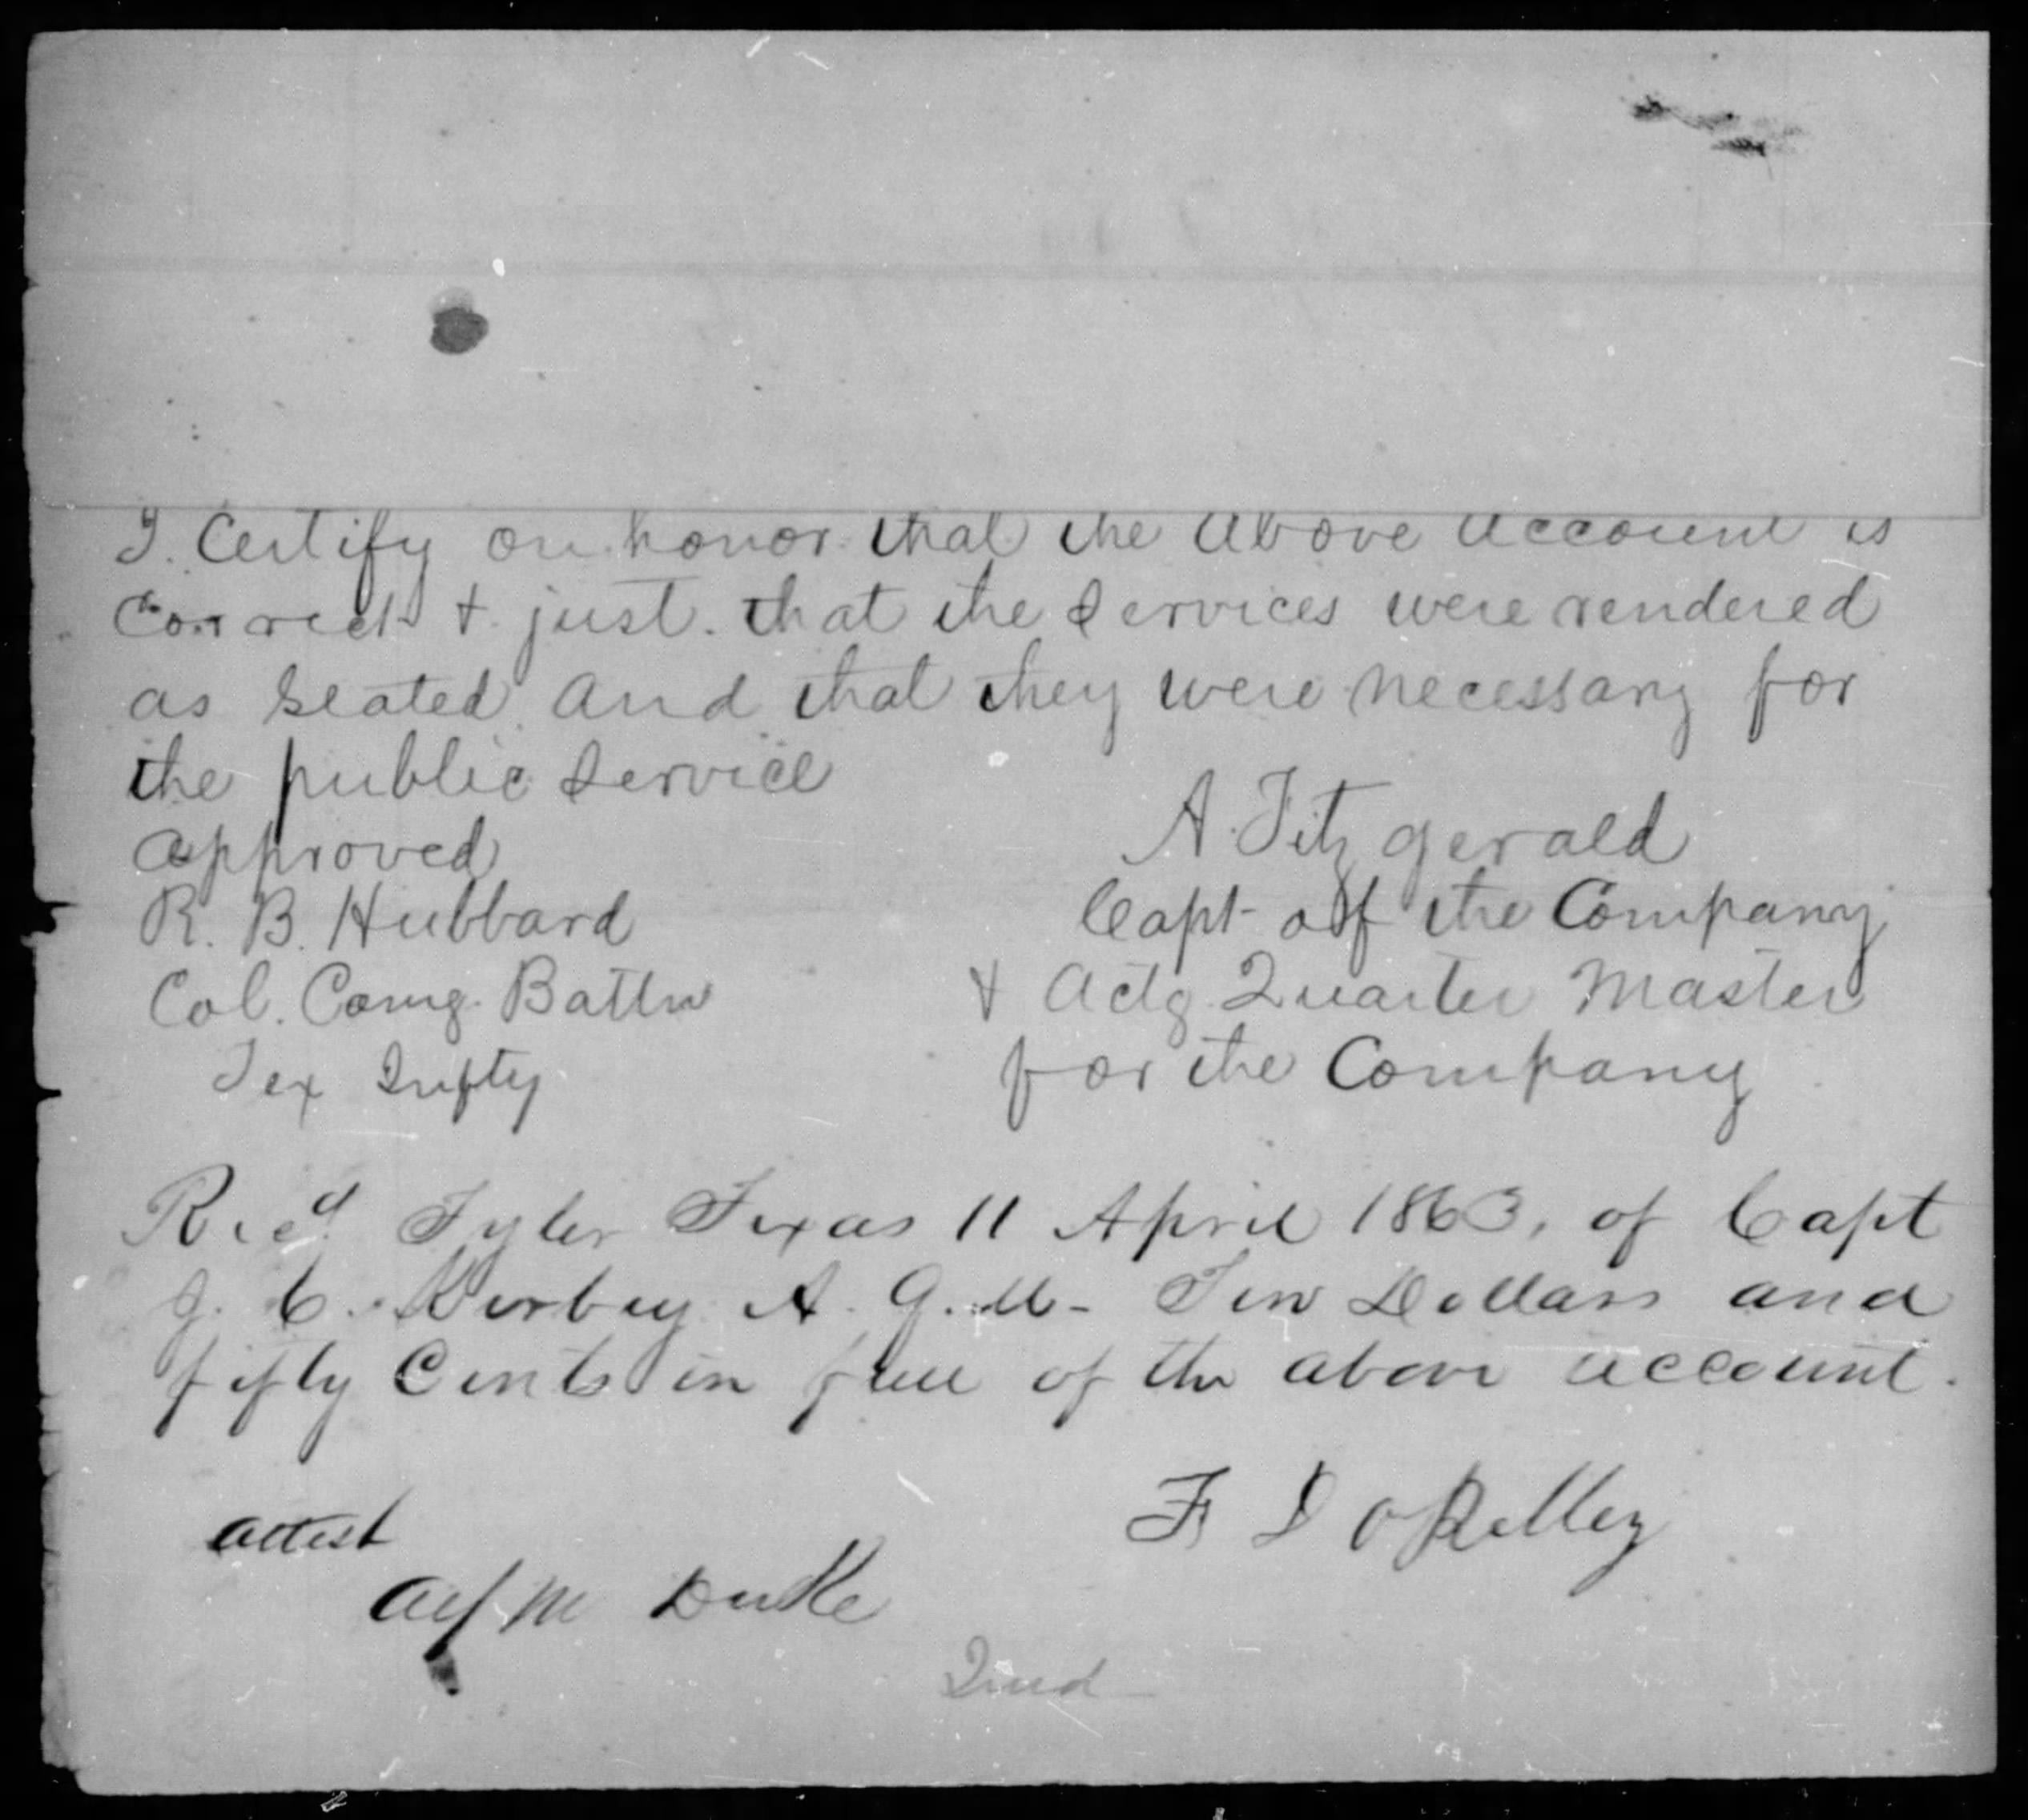 I. Certify on honor that the above account is
Correct + just. that the Services were rendered
as Stated and that they were necessary for
the public Service
approved
A. Fitzgerald
R. B. Hubbard
Capt of the Company
Col. Comg. Battn
+ Actg. Quarter Master
Tex Infty
for the Company
Recd. Tyler Texas 11 April 1863, of Capt
J. C. Kerbey A. Q. M - Ten Dollars and
fifty Cents in full of the above account.
attest
F D O Kelley
M Duke